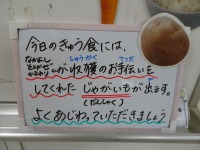 今日のきゅう食には、
しゅうかく てつだ
が収穫のお手伝いを
してくれた じゃがいもが出ます。
(だんしゃく)
よくあじわっていただきましょう